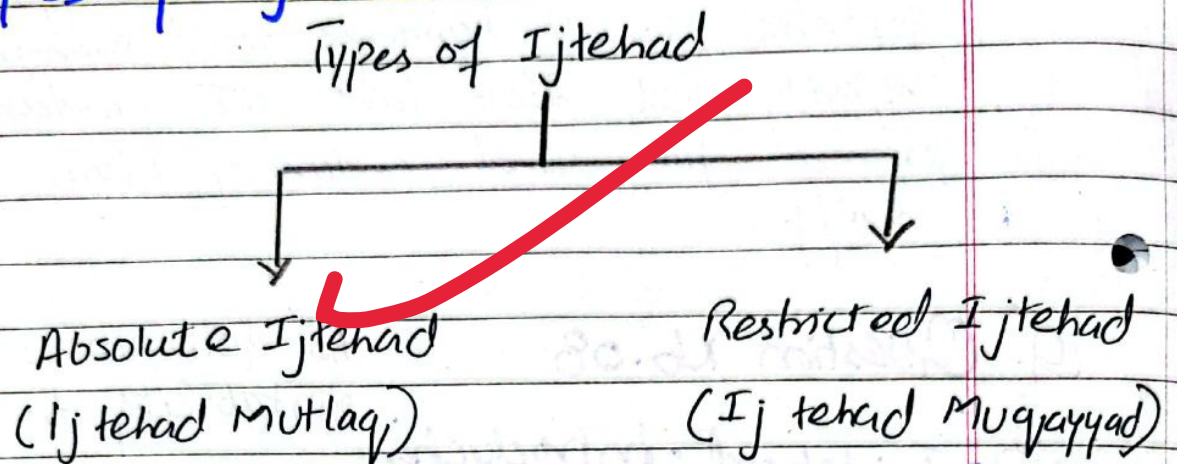 Types of Ijtehad
Absolute Ijtehad
(Ijtehad Mutlaq)
Restricted Ijtehad
(Ijtehad Muqayyad)